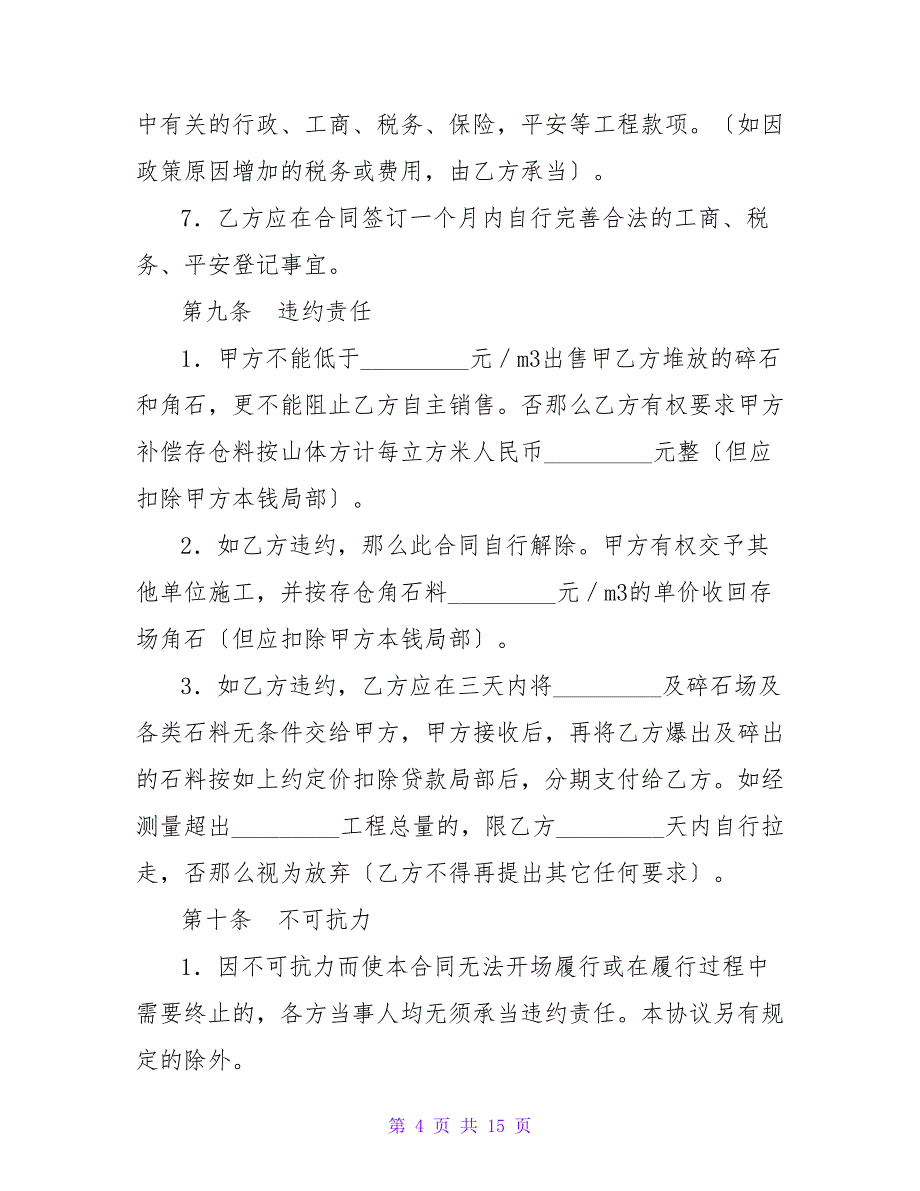 中有关的行政、工商、税务、保险，平安等工程款项。〔如因
政策原因增加的税务或费用，由乙方承当〕。
7．乙方应在合同签订一个月内自行完善合法的工商、税
务、平安登记事宜。
第九条　违约责任
1．甲方不能低于_________元／m3出售甲乙方堆放的碎石
和角石，更不能阻止乙方自主销售。否那么乙方有权要求甲方
补偿存仓料按山体方计每立方米人民币_________元整〔但应
扣除甲方本钱局部〕。
2．如乙方违约，那么此合同自行解除。甲方有权交予其
他单位施工，并按存仓角石料_________元／m3的单价收回存
场角石〔但应扣除甲方本钱局部〕。
3．如乙方违约，乙方应在三天内将_________及碎石场及
各类石料无条件交给甲方，甲方接收后，再将乙方爆出及碎出
的石料按如上约定价扣除贷款局部后，分期支付给乙方。如经
测量超出_________工程总量的，限乙方_________天内自行拉
走，否那么视为放弃〔乙方不得再提出其它任何要求〕。
第十条　不可抗力
1．因不可抗力而使本合同无法开场履行或在履行过程中
需要终止的，各方当事人均无须承当违约责任。本协议另有规
定的除外。
第 4 页 共 15 页